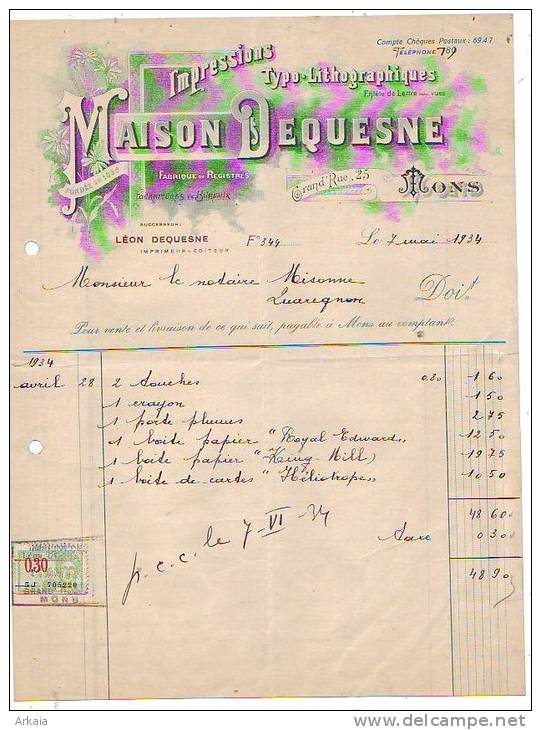 Compte Chèques Postaux : 69.47
TÉLÉPHONE 789
Impressions
Typo-Lithographiques
Entête de Lettre vues
MAISON DEQUESNE
FONDÉE EN
FABRIQUE DE REGISTRES
FOURNITURES DE BUREAUX
Grand'Rue, 25
MONS
SUCCESSEUR:
LÉON DEQUESNE
IMPRIMEUR-ÉDITEUR
F° 344
Le 7 mai 1934
Monsieur le notaire Misonne
Quaregnon
Doit
Pour vente et livraison de ce qui suit, payable à Mons au comptant.
1934
avril 28 2 touches 0.80 1 60
1 crayon 1 50
1 porte plumes 2 75
1 boîte papier "Royal Edward" 12 50
1 boîte papier "King Mill) 19 75
1 boîte de cartes "Héliotrope" 10 50
48 60
Taxe 0 30
48 90
p.c.c. le 7-VI-34
0.30
5J 705220
GRAND
MONS
Arkaia
www.delcampe.net